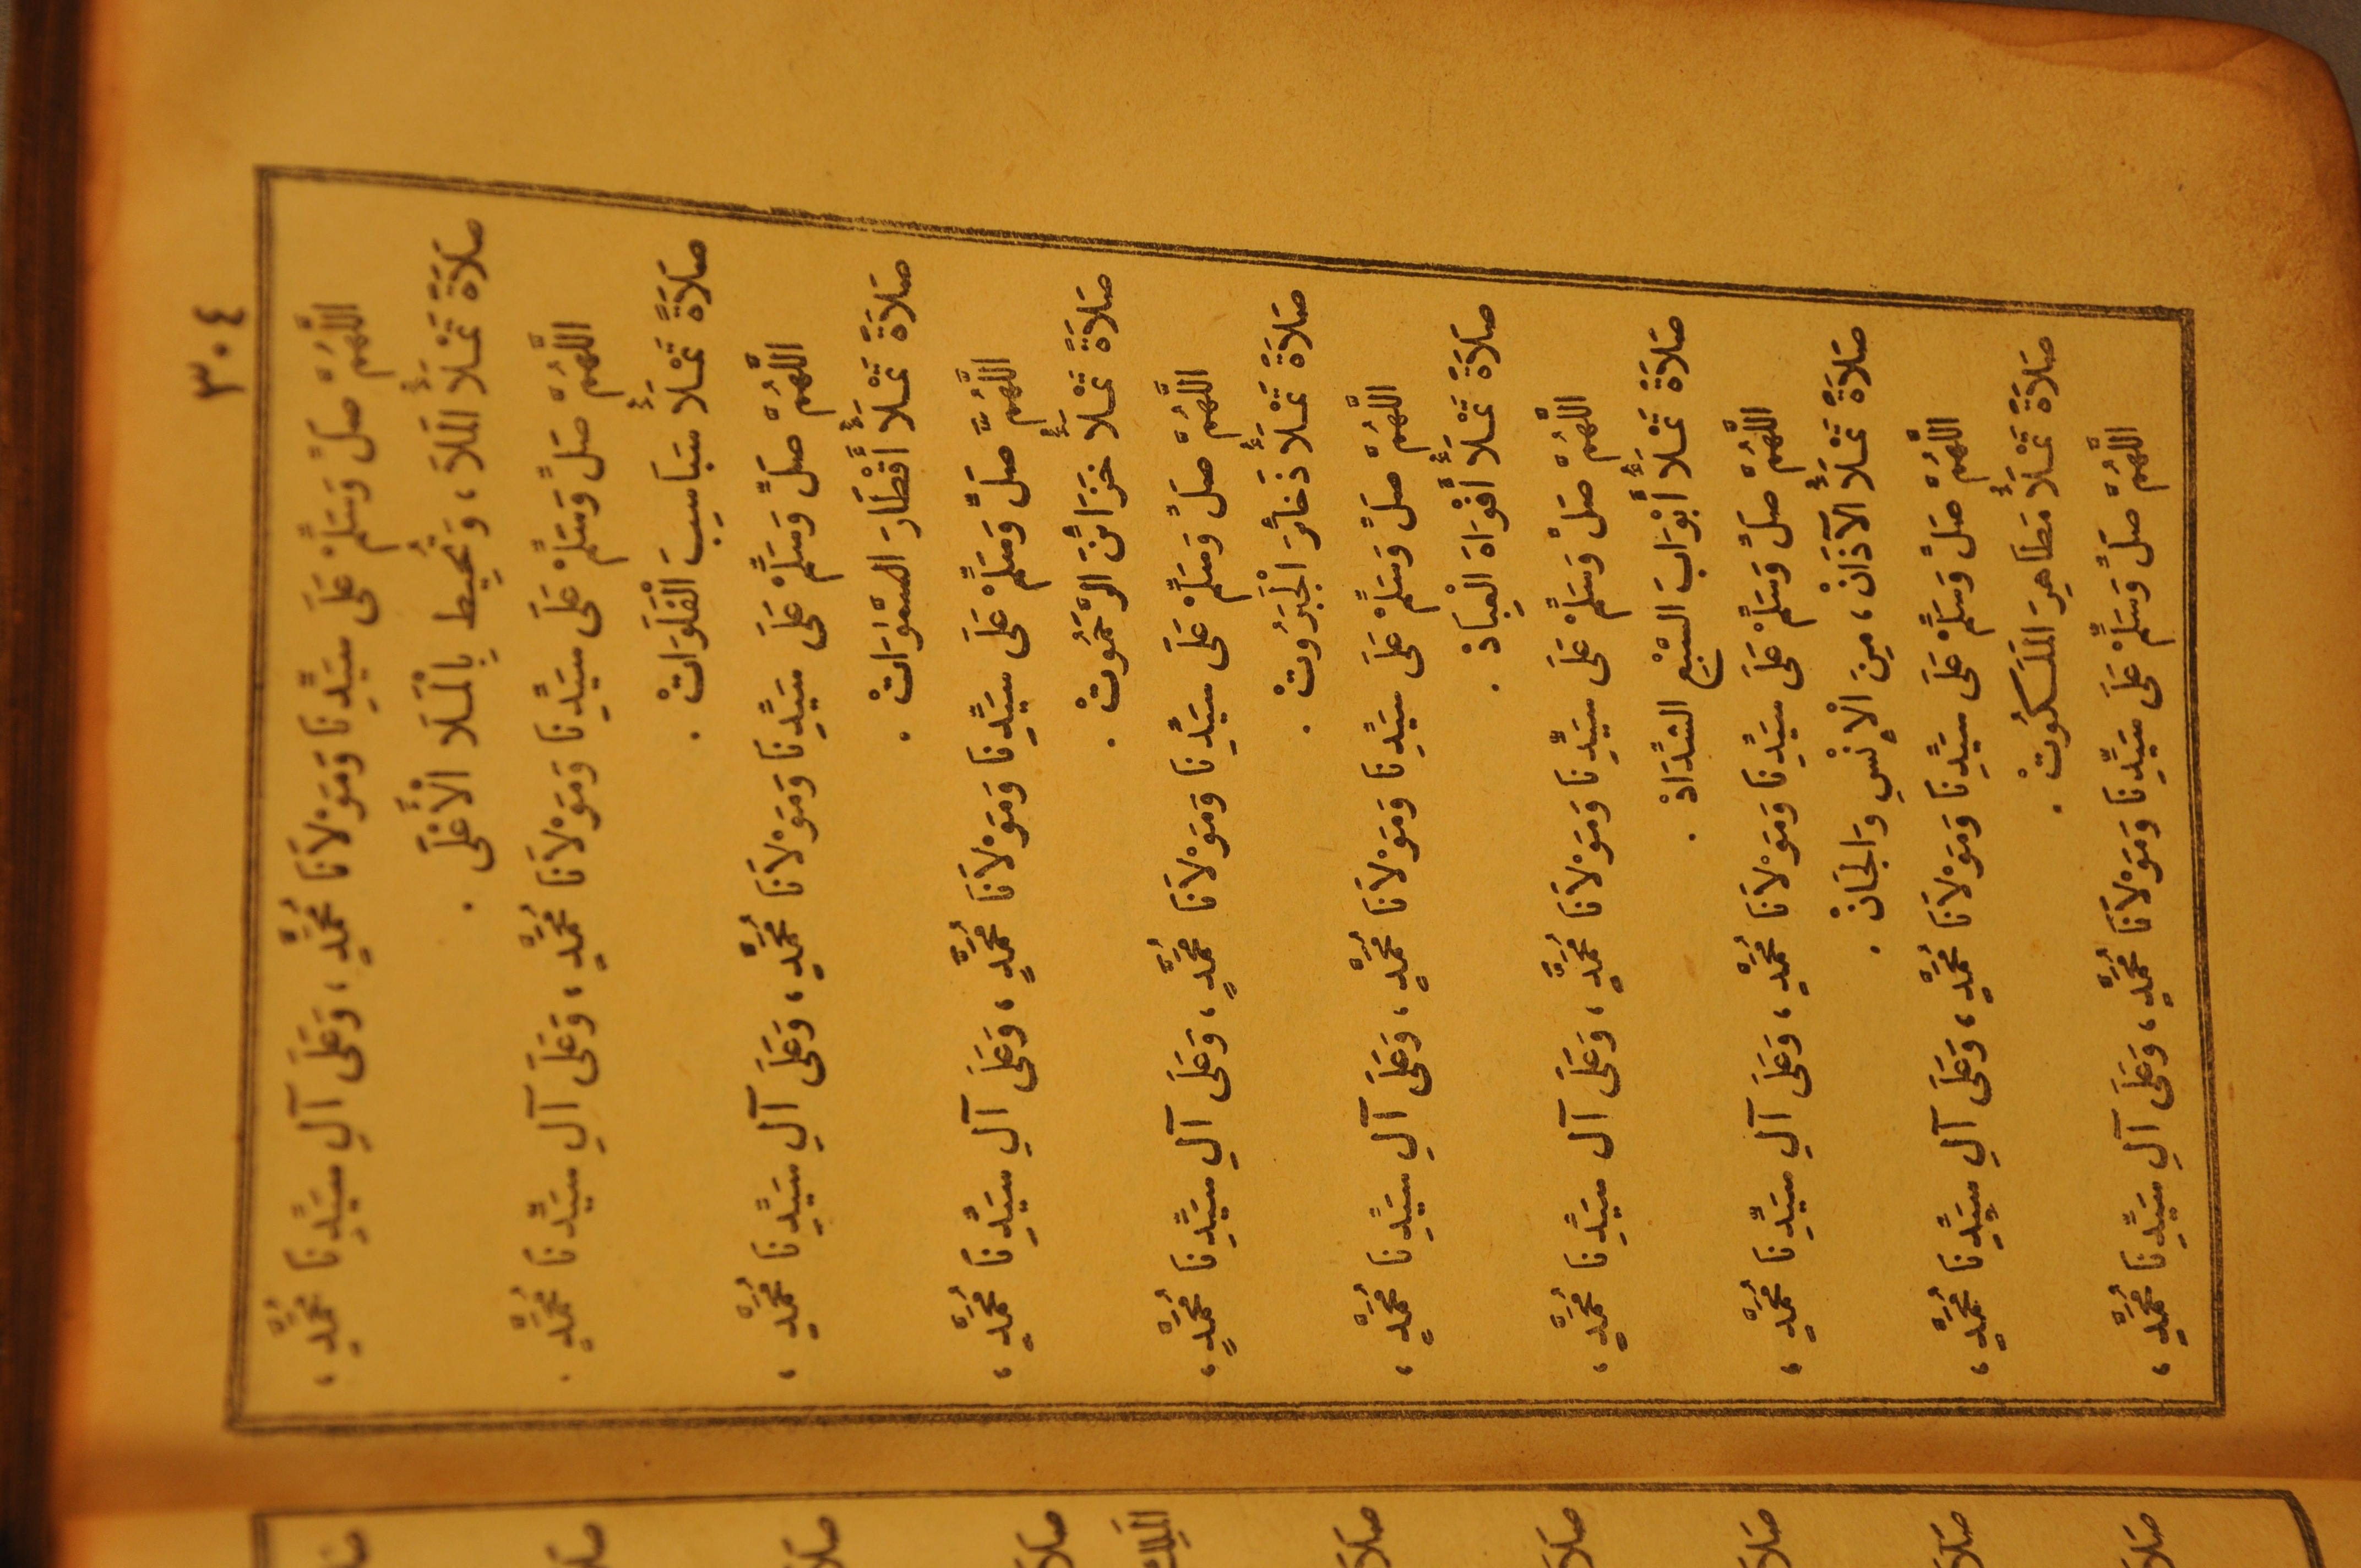 ٣٠٤
اللَّهُمَّ صَلِّ وَسَلِّمْ عَلَى سَيِّدِنَا وَمَوْلَانَا مُحَمَّدٍ، وَعَلَى آلِ سَيِّدِنَا مُحَمَّدٍ،
صَلَاةً تَمْلَأُ الْمَلَا، وَتُحِيطُ بِالْمَلَا الْأَعْلَى .
اللَّهُمَّ صَلِّ وَسَلِّمْ عَلَى سَيِّدِنَا وَمَوْلَانَا مُحَمَّدٍ، وَعَلَى آلِ سَيِّدِنَا مُحَمَّدٍ .
صَلَاةً تَمْلَأُ سَبَاسِبَ الْفَلَوَاتْ .
اللَّهُمَّ صَلِّ وَسَلِّمْ عَلَى سَيِّدِنَا وَمَوْلَانَا مُحَمَّدٍ، وَعَلَى آلِ سَيِّدِنَا مُحَمَّدٍ ،
صَلَاةً تَمْلَأُ أَقْطَارَ السَّمٰوَاتْ .
اللَّهُمَّ صَلِّ وَسَلِّمْ عَلَى سَيِّدِنَا وَمَوْلَانَا مُحَمَّدٍ، وَعَلَى آلِ سَيِّدِنَا مُحَمَّدٍ،
صَلَاةً تَمْلَأُ خَزَائِنَ الرَّحَمُوتْ .
اللَّهُمَّ صَلِّ وَسَلِّمْ عَلَى سَيِّدِنَا وَمَوْلَانَا مُحَمَّدٍ، وَعَلَى آلِ سَيِّدِنَا مُحَمَّدٍ،
صَلَاةً تَمْلَأُ ذَخَائِرَ الْجَبَرُوتْ .
اللَّهُمَّ صَلِّ وَسَلِّمْ عَلَى سَيِّدِنَا وَمَوْلَانَا مُحَمَّدٍ، وَعَلَى آلِ سَيِّدِنَا مُحَمَّدٍ ،
صَلَاةً تَمْلَأُ أَفْوَاهَ الْعِبَادْ .
اللَّهُمَّ صَلِّ وَسَلِّمْ عَلَى سَيِّدِنَا وَمَوْلَانَا مُحَمَّدٍ، وَعَلَى آلِ سَيِّدِنَا مُحَمَّدٍ ،
صَلَاةً تَمْلَأُ أَبْوَابَ السَّبْعِ الشِّدَادْ .
اللَّهُمَّ صَلِّ وَسَلِّمْ عَلَى سَيِّدِنَا وَمَوْلَانَا مُحَمَّدٍ، وَعَلَى آلِ سَيِّدِنَا مُحَمَّدٍ ،
صَلَاةً تَمْلَأُ الْآذَانْ، مِنَ الْإِنْسِ وَالْجَانْ .
اللَّهُمَّ صَلِّ وَسَلِّمْ عَلَى سَيِّدِنَا وَمَوْلَانَا مُحَمَّدٍ، وَعَلَى آلِ سَيِّدِنَا مُحَمَّدٍ،
صَلَاةً تَمْلَأُ مَظَاهِرَ الْمَلَكُوتْ .
اللَّهُمَّ صَلِّ وَسَلِّمْ عَلَى سَيِّدِنَا وَمَوْلَانَا مُحَمَّدٍ، وَعَلَى آلِ سَيِّدِنَا مُحَمَّدٍ ،